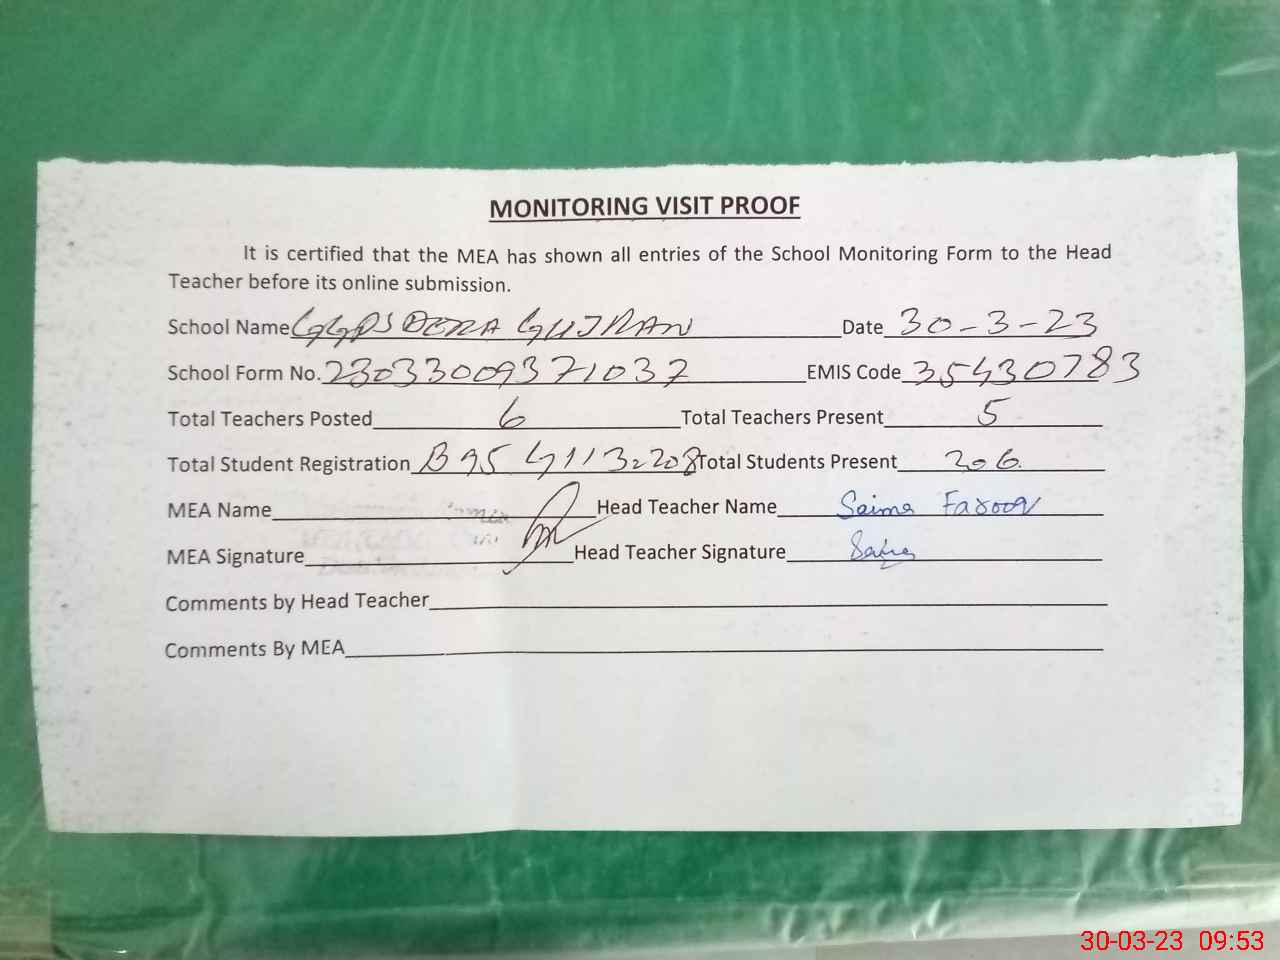 MONITORING VISIT PROOF
It is certified that the MEA has shown all entries of the School Monitoring Form to the Head
Teacher before its online submission.
School Name GGPS DERA GUJRAN Date 30-3-23
School Form No. 23033009371037 EMIS Code 35430783
Total Teachers Posted 6 Total Teachers Present 5
Total Student Registration B 95 G 113 = 208 Total Students Present 206
MEA Name Head Teacher Name Saima Farooq
MEA Signature Head Teacher Signature
Comments by Head Teacher
Comments By MEA
30-03-23 09:53